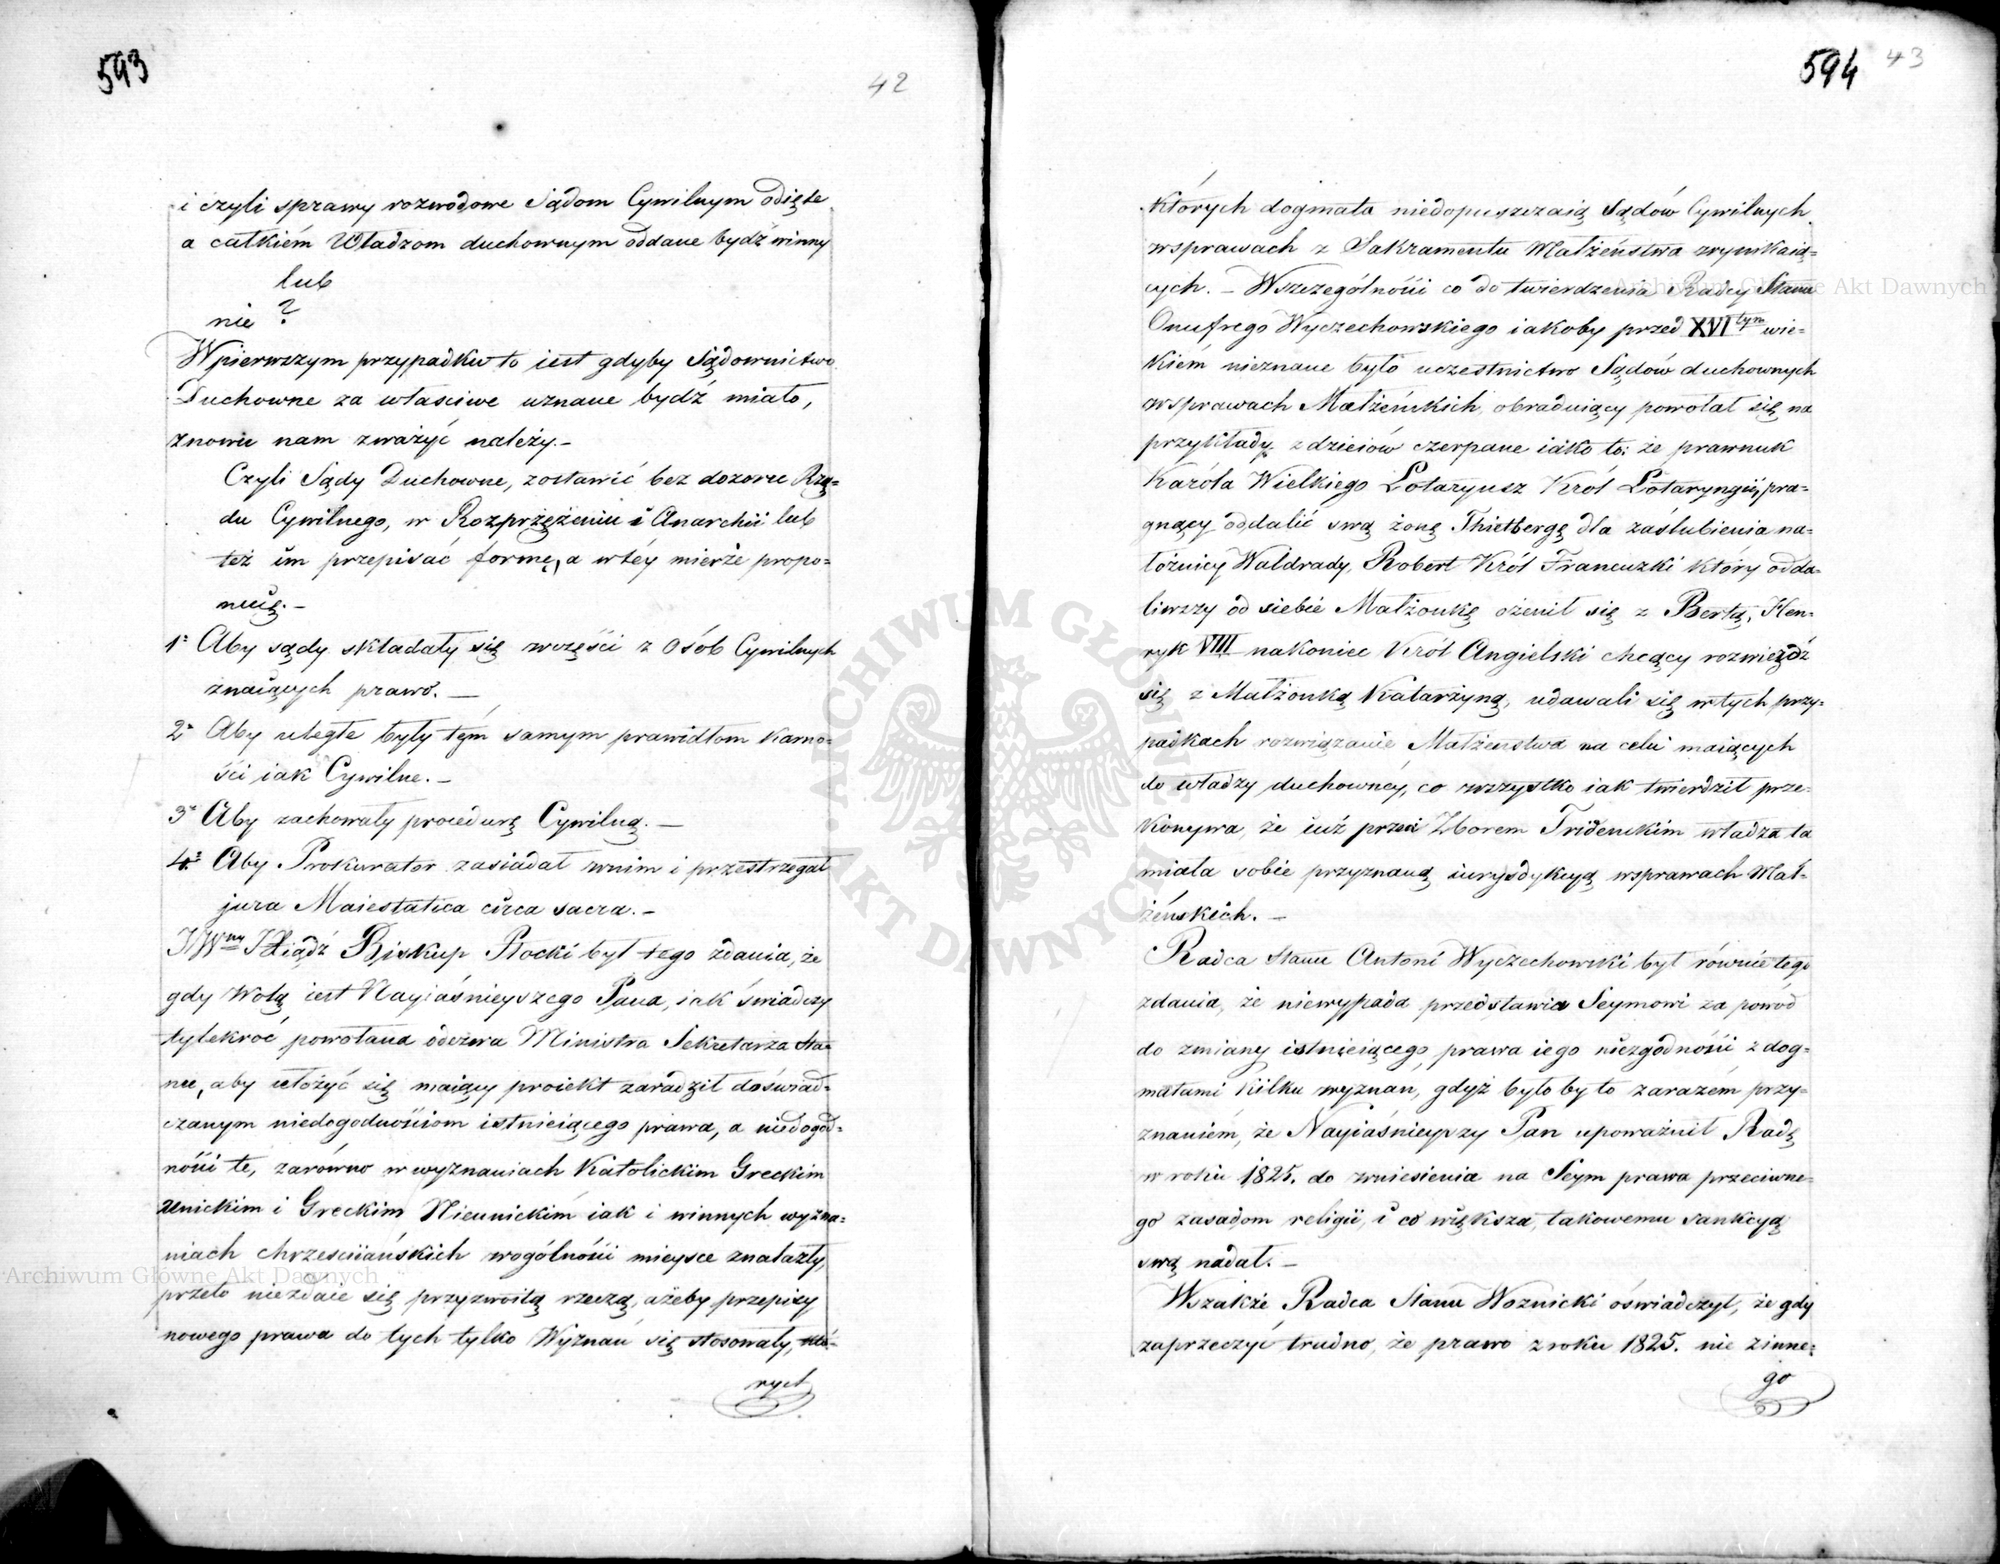 593
42
i czyli sprawy rozwodowe Sądom Cywilnym odięte
a całkiém Władzom duchownym oddane bydź winny
lub
nie?
W pierwszym przypadku to iest gdyby Sądownictwo
Duchowne za właściwe uznane bydź miało,
znowu nam zważyć należy.–
Czyli Sądy Duchowne, zostawić bez dozoru Rzą-
du Cywilnego, w Rozprzężeniu i Anarchii lub
też im przepisać formę, a w téy mierze propo-
nuię.–
1° Aby sądy składały się wczęści z Osób Cywilnych
znaiących prawo.–
2° Aby uległe były tym samym prawidłom karno-
ści iak Cywilne.–
3° Aby zachowały procedurę Cywilną.–
4° Aby Prokurator zasiadał wnim i przestrzegał
jura Maiestatica circa sacra.–
JWny Xiądz Biskup Płocki był tego zdania, że
gdy Wolą iest Nayiaśnieyszego Pana, iak świadczy
tylekroć powołana odezwa Ministra Sekretarza Sta-
nu, aby ułożyć się maiący proiekt zaradził doświad-
czanym niedogodnościom istnieiącego prawa, a niedogod-
ności te, zarówno w wyznaniach Katolickim Greckim
Unickim i Greckim Nieunickim iak i winnych wyzna-
niach chrześciiańskich wogólności mieysce znalazły,
przeto niezdaie się przyzwoitą rzeczą, ażeby przepisy
nowego prawa do tych tylko Wyznań się stosowały, któ-
rych
594
43
których dogmata niedopuszczaią Sądów Cywilnych
wsprawach z Sakramentu Małżeństwa wynikaią-
cych. – Wszczególności co do twierdzenia Radcy Stanu
Onufrego Wyczechowskiego iakoby przed XVItym wie-
kiém nieznane było uczestnictwo Sądów duchownych
wsprawach Małżeńskich, obraduiący powołał się na
przykłady z dzieiów czerpane iako to: że prawnuk
Karóla Wielkiego Lotaryusz Król Lotaryngii, pra-
gnący oddalić swą żonę Thietbergę dla zaślubienia na-
łóżnicy Waldrady, Robert Król Francuzki który odda-
liwszy od siebie Małżonkę ożenił się z Bertą, Hen-
ryk VIII nakoniec Król Angielski chcący rozwieźdź
się z Małżonką Katarzyną, udawali się wtych przy-
padkach rozwiązanie Małżeństwa na celu maiących
do władzy duchownéy, co wszystko iak twierdził prze-
konywa, że iuż przed Zborem Tridenckim władza ta
miała sobie przyznaną iurysdykcyą wsprawach Mał-
żeńskich.–
Radca Stanu Antoni Wyczechowski był równie tego
zdania, że niewypada przedstawiać Seymowi za powod
do zmiany istnieiącego prawa iego niezgodności z dog-
matami kilku wyznań, gdyż byłoby to zarazem przy-
znaniém, że Nayiaśnieyszy Pan upoważnił Radę
w roku 1825. do wniesienia na Seym prawa przeciwne-
go zasadom religii, i co większa, takowemu sankcyą
swą nadał.–
Wszakże Radca Stanu Woznicki oświadczył, że gdy
zaprzeczyć trudno, że prawo z roku 1825. nie zinne-
go
Archiwum Główne Akt Dawnych
Archiwum Główne Akt Dawnych
ARCHIWUM GŁÓWNE AKT DAWNYCH